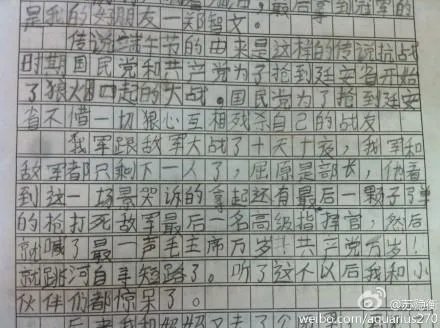 是我的好朋友一郑智文。
传说端午节的由来是这样的传说抗战
时期国民党和共产党为了抢到延安省开始
了狼火四起的大战。国民党为了抢到延安
省不惜一切狠心互相残杀自己的战友
我军跟敌军大战了十天十夜，我军和
敌军都只剩下一人了，屈原是部长，他看
到这一场景哭诉的拿起还有最后一颗子弹
的枪打死敌军最后一名高级指挥官，然后
就喊了最一声毛主席万岁！共产党万岁！
就跳河自寻短路了。听了这个以后我和小
伙伴们都惊呆了。
weibo.com/aquarius270